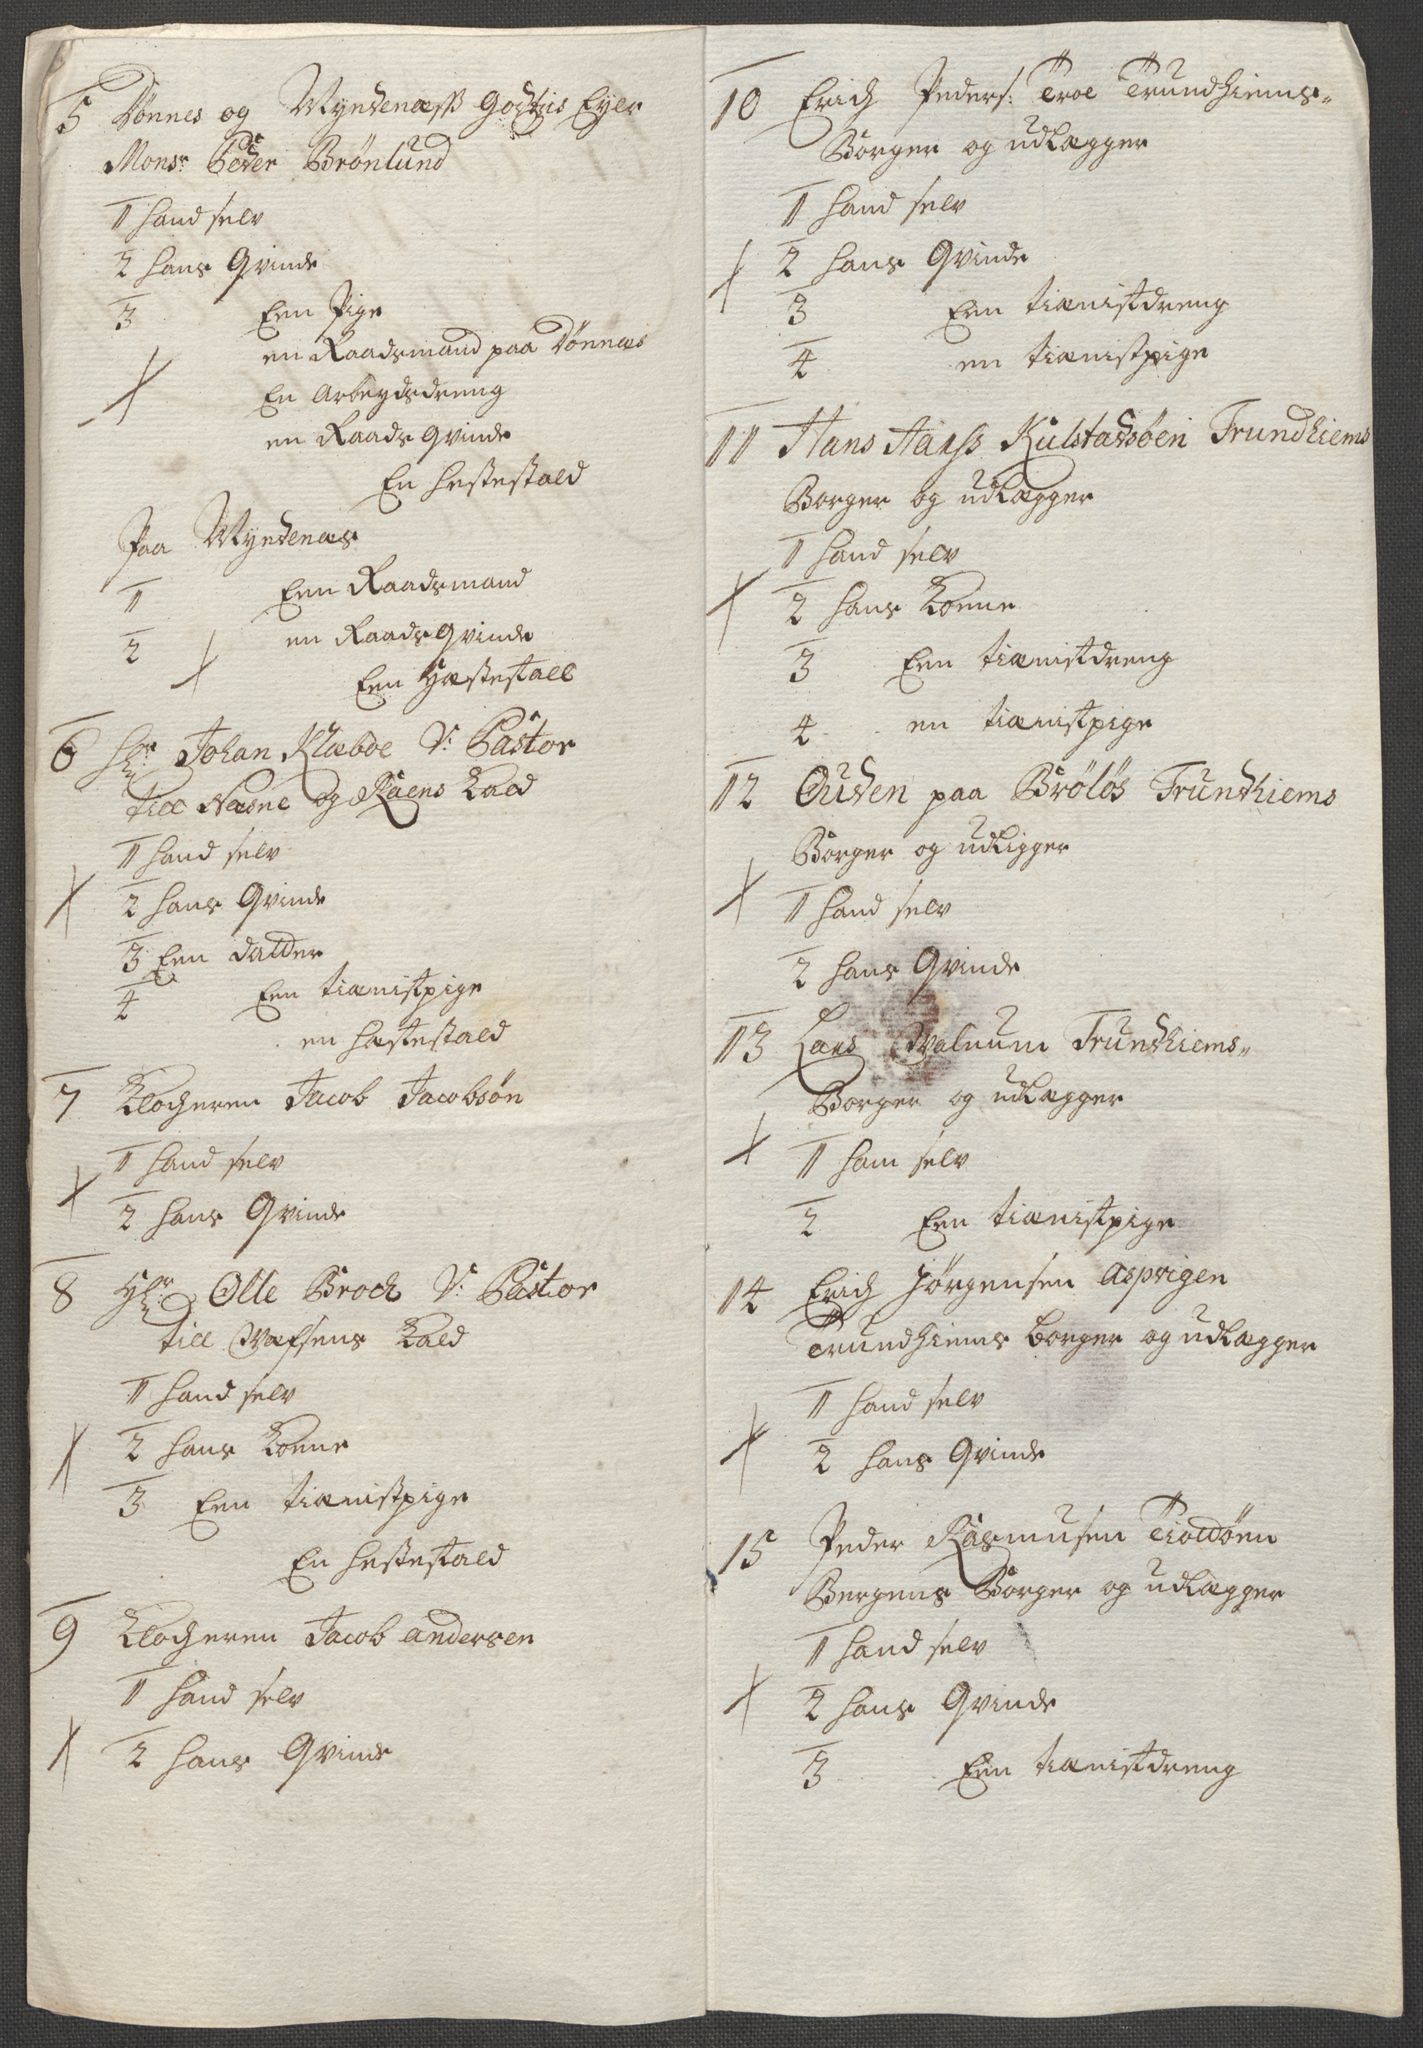 5 Dønnes og Myndenæss Godtzis Eyer
Monsr Peder Brønlund
1 hand selv
2 hans Qvinde
3 Een Pige
en Raadsmand paa Dønnæs
En Arbeydsdreng
en Raads Qvinde
En hestestald
Paa Myndenæs
1 Een Raadsmand
2 en Raads Qvinde
Een Hæstestall
6 Hr Johan Klæboe V: Pastor
till Næsne og Raens Kald
1 hand selv
2 hans Qvinde
3 Een datder
4 Een tiænistpige
en hæstestald
7 Klocheren Jacob Jacobsøn
1 hand selv
2 hans Qvinde
8 Hr Olle Broch V: Pastor
till Wefsens Kald
1 hand selv
2 hans Kone
3 Een tiænistpige
En hestestald
9 Klocheren Jacob andersen
1 hand selv
2 hans Qvinde
10 Erich Peders: Troe Trundhiems-
Borger og udlægger
1 hand selv
2 hans Qvinde
3 Een tiænistdreng
4 en tiænistpige
11 Hans Hanss Kulstadsøen Trundhiems
Borger og udlægger
1 hand selv
2 hans Kone
3 Een tiænistdreng
4 en tiænistpige
12 Ouden paa Brøløs Trundhiems
Borger og udligger
1 hand selv
2 hans Qvinde
13 Lars Walnum Trundhiems-
Borger og udlægger
1 ham selv
2 Een tiænistpige
14 Erich Jørgensen Asprigen
Trundhiems borger og udlægger
1 hand selv
2 hans Qvinde
15 Peder Rasmusen Tiotdøen
Bergens Borger og udlægger
1 hand selv
2 hans Qvinde
3 Een tiænistdreng